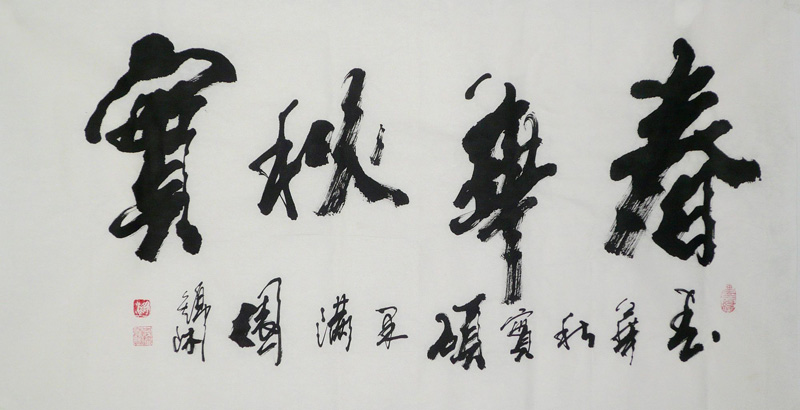 春華秋實
春華秋實碩果滿園